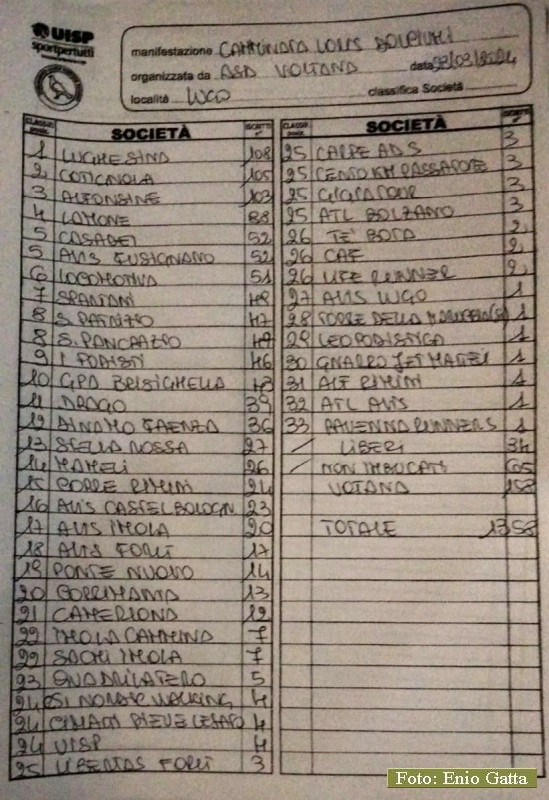 UISP
sportpertutti
manifestazione CAMMINATA LOUIS
organizzata da ASD VOLTANA data 03/03/2024
località LUGO classifica Società
CLASSIF. SOCIETÀ ISCRITTI n°
1 LUGHESINA 108
2 COTIGNOLA 105
3 ALFONSINE 103
4 LAMONE 88
5 CASADEI 52
5 AVIS FUSIGNANO 52
6 LOCOMOTIVA 51
7 SPARTANI 48
8 S. PATRIZIO 47
8 S. PANCRAZIO
9 I PODISTI 46
10 GPD BRISIGHELLA 43
11 DRAGO 39
12 DINAMO FAENZA 36
13 STELLA ROSSA 27
14 MAMELI 26
15 CORRE RIMINI 24
16 AVIS CASTELBOLOGN. 23
17 AVIS IMOLA 20
18 AVIS FORLI 17
19 PONTE NUOVO 14
20 CORRIMANIA 13
21 CAMERLONA 12
22 IMOLA CAMMINA 7
22 SACMI IMOLA 7
23 QUADRILATERO 5
24 SI NORDIK WALKING 4
24 CIMATTI PIEVE CESATO 4
24 UISP 4
25 LIBERTAS FORLI 3
CLASSIF. SOCIETÀ ISCRITTI n°
25 CARPE AD S 3
25 CENTO KM PASSATORE 3
25 3
25 ATL BOLZANO 3
26 TE' BOTA 2
26 CAF 2
26 LIFE RUNNER 2
27 AVIS LUGO 1
28 TORRE DELLA 1
29 LEOPODISTICA 1
30 GNARRO JET MATTEI 1
31 RIMINI 1
32 ATL AVIS 1
33 RAVENNA RUNNERS 1
/ LIBERI 34
/ NON IMBUCATI 65
VOTANA 158
TOTALE 1358
Foto: Enio Gatta